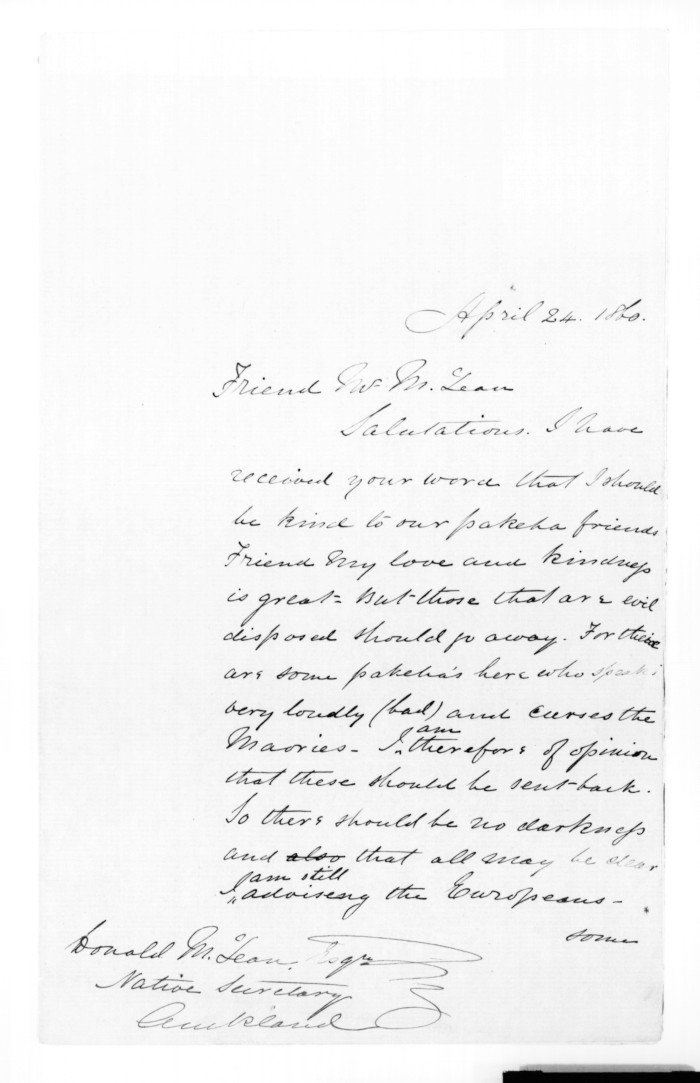 April 24. 1860.
Friend Mr McLean
Salutations. I have
received your word that I should
be kind to our pakeha friends
Friend My love and kindness
is great - But those that are evil
disposed should go away. For there
are some pakeha's here who speak
very loudly (bad) and curses the
Maories - I am therefore of opinion
that these should be sent back.
So there should be no darkness
and also that all may be clear
I am still adviseng the Europeans -
some
Donald McLean, Esqre
Native Secretary
Auckland